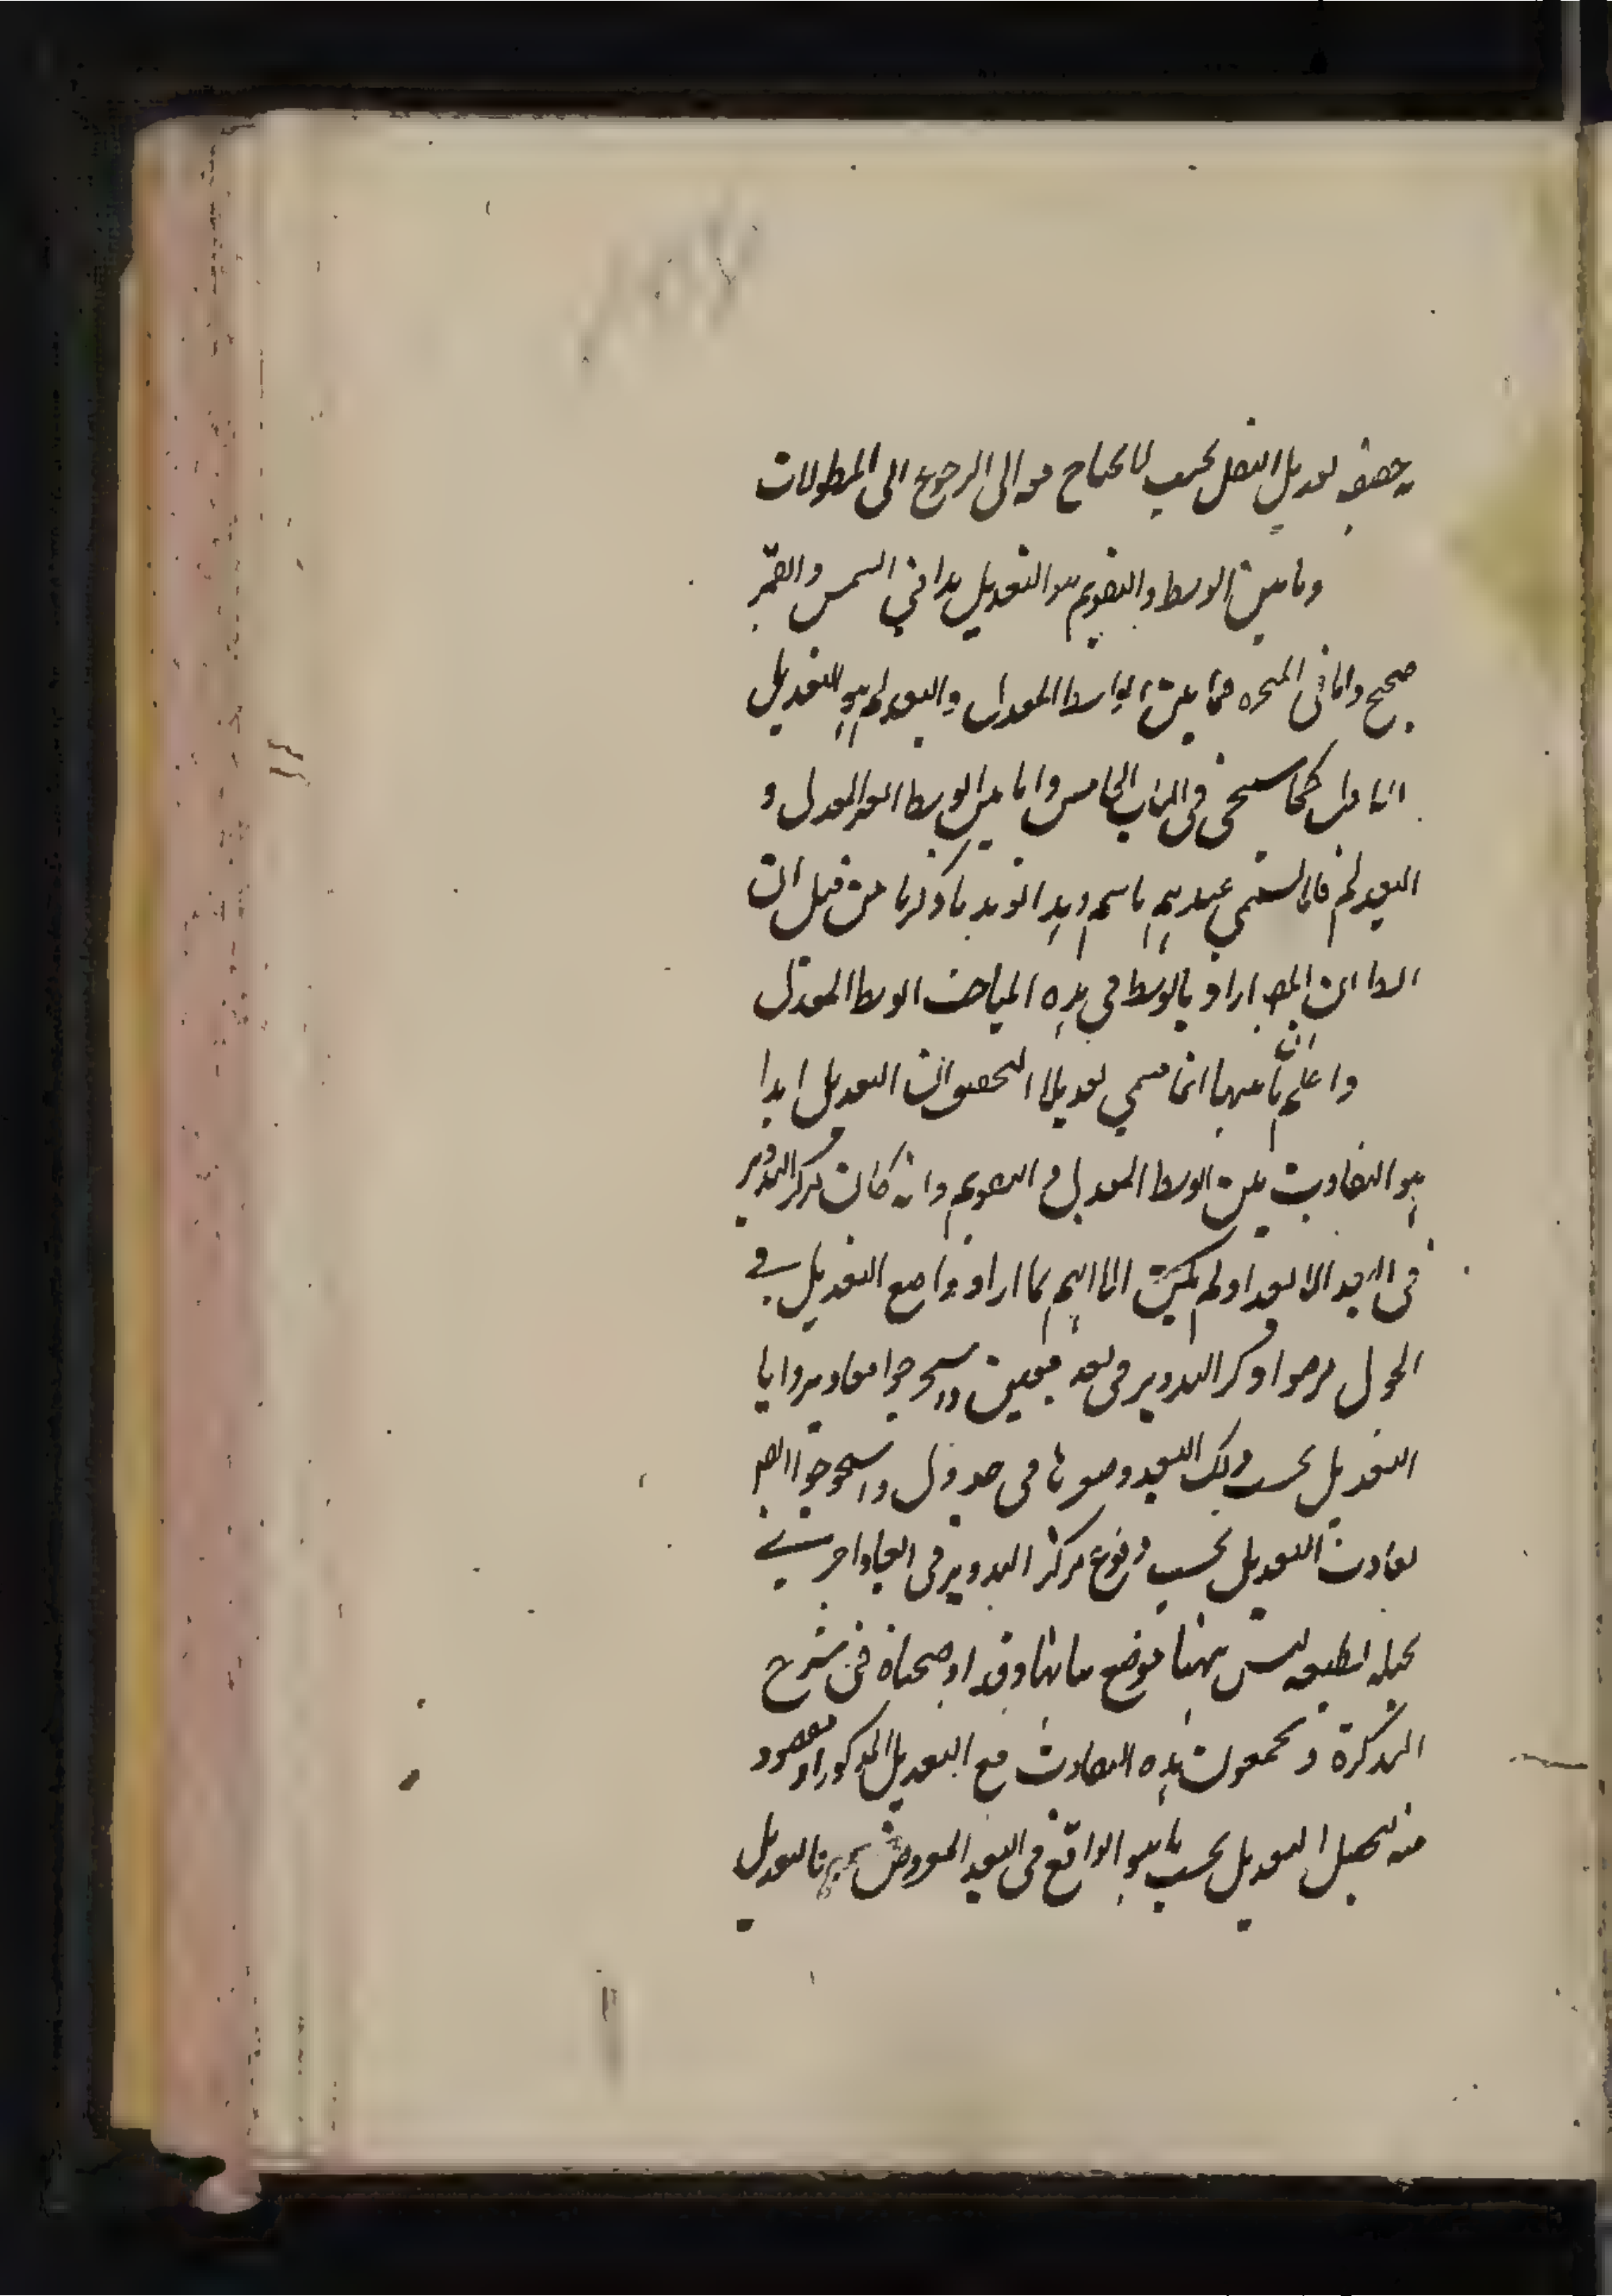 حقيقة تعديل النقل بحيث لا يحتاج معه الى الرجوع الى المطولات
وما بين الوسط والتقويم هو التعديل هذا في الشمس والقمر
صحيح واما في المتحيرة فما بين الوسط المعدل والتقويم هو التعديل
كما سيجي في الباب الخامس واما بين الوسط الغير المعدل و
التقويم فلم يسم عندهم باسم وهذا يؤيد ما ذكرنا من قبل ان
ان المص اراد بالوسط في هذه المباحث الوسط المعدل
واعلم ان ما بينهما انما سمي تعديلا لتحقيق ان التعديل ابدا
هو التفاوت بين الوسط المعدل والتقويم وان كان مركز التدوير
في البعد الابعد او لم يكن الا انهم لما ارادوا وضع التعديل في
الجدول فرضوا مركز التدوير في بعد معين واستخرجوا مقادير زوايا
التعديل بحسب ذلك البعد وضعوها في جدول واستخرجوا ايضا
تفاوت التعديل بحسب وقوع مركز التدوير في ابعاد اخر
بحيلة لطيفة ليس ههنا موضع بيانها وقد اوضحناه في شرح
التذكرة ويجمعون هذه التفاوت مع التعديل المذكور او ينقصونه
منه ليحصل التعديل بحسب ما هو الواقع في البعد المفروض فالتعديل